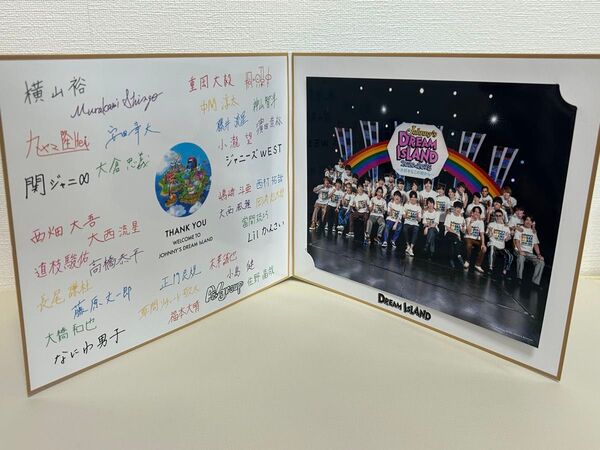 横山裕
Murakami Shingo
安田章大
大倉忠義
関ジャニ∞
西畑大吾
大西流星
道枝駿佑
高橋恭平
長尾謙杜
藤原丈一郎
大橋和也
なにわ男子
THANK YOU
WELCOME TO
JOHNNY'S DREAM ISLAND
重岡大毅
中間淳太
桐山智
藤井流星
濵田崇裕
小瀧望
ジャニーズWEST
嶋﨑斗亜
西村拓哉
大西風雅
當間琉巧
Lilかんさい
正門良規
末澤誠也
小島健
福本大晴
佐野晶哉
Johnny's
DREAM
ISLAND
DREAM ISLAND